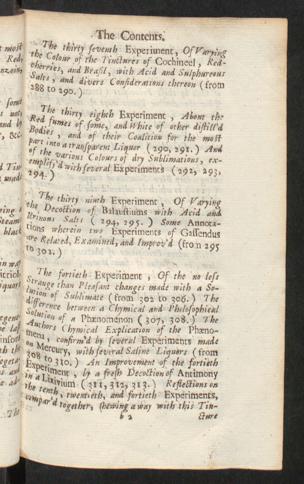 The Contents.
The thirty seventh Experiment, Of Varying
the Colour of the Tinctures of Cochineel, Red-
cherries, and Brasil, with Acid and Sulphureous
Salts, and divers Considerations thereon (from
288 to 290.)
The thirty eighth Experiment, About the
Red fumes of some, and White of other distill'd
Bodies, and of their Coalition for the most
part into a transparent Liquor (290, 291.) And
of the various Colours of dry Sublimations, ex-
emplify'd with several Experiments (292, 293,
294.)
The thirty ninth Experiment, Of Varying
the Decoction of Balaustiums with Acid and
Urinous Salts (294, 295.) Some Annota-
tions wherein two Experiments of Gassendus
are Related, Examined, and Improv'd (from 295
to 302.)
The fortieth Experiment, Of the no less
Strange than Pleasant changes made with a So-
lution of Sublimate (from 302 to 306.) The
difference between a Chymical and Philosophical
Solution of a Phænomenon (307, 308.) The
Authors Chymical Explication of the Phæno-
mena, confirm'd by several Experiments made
on Mercury, with several Saline Liquors (from
308 to 310.) An Improvement of the fortieth
Experiment, by a fresh Decoction of Antimony
in a Lixivium (311, 312, 313.) Reflections on
the tenth, twentieth, and fortieth Experiments,
compar'd together, shewing a way with this Tin-
b 2 cture